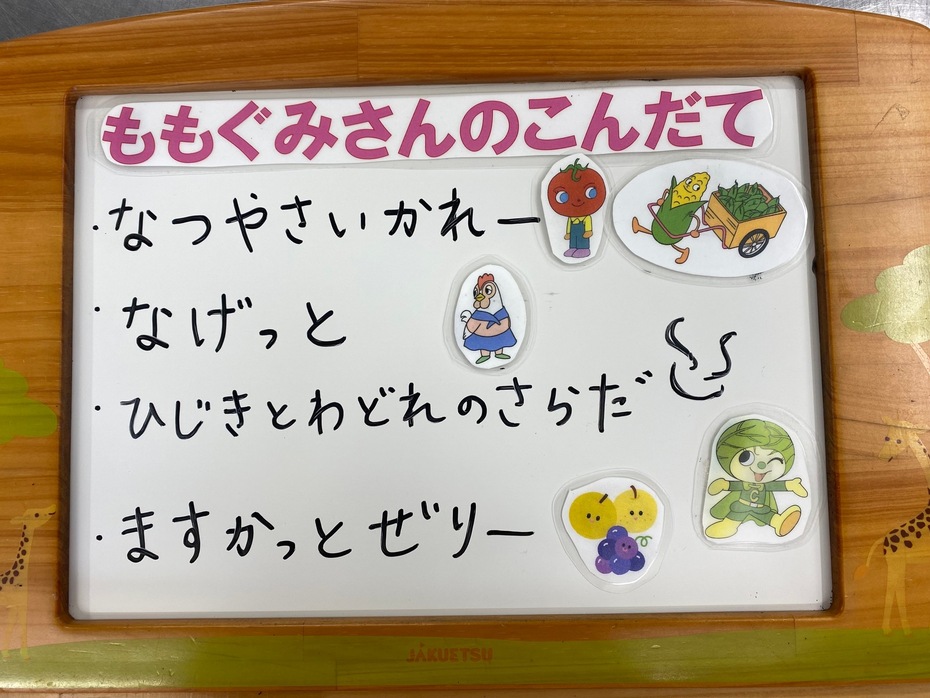 ももぐみさんのこんだて
・なつやさいかれー
・なげっと
・ひじきとわどれのさらだ
・ますかっとぜりー
C
JAKUETSU